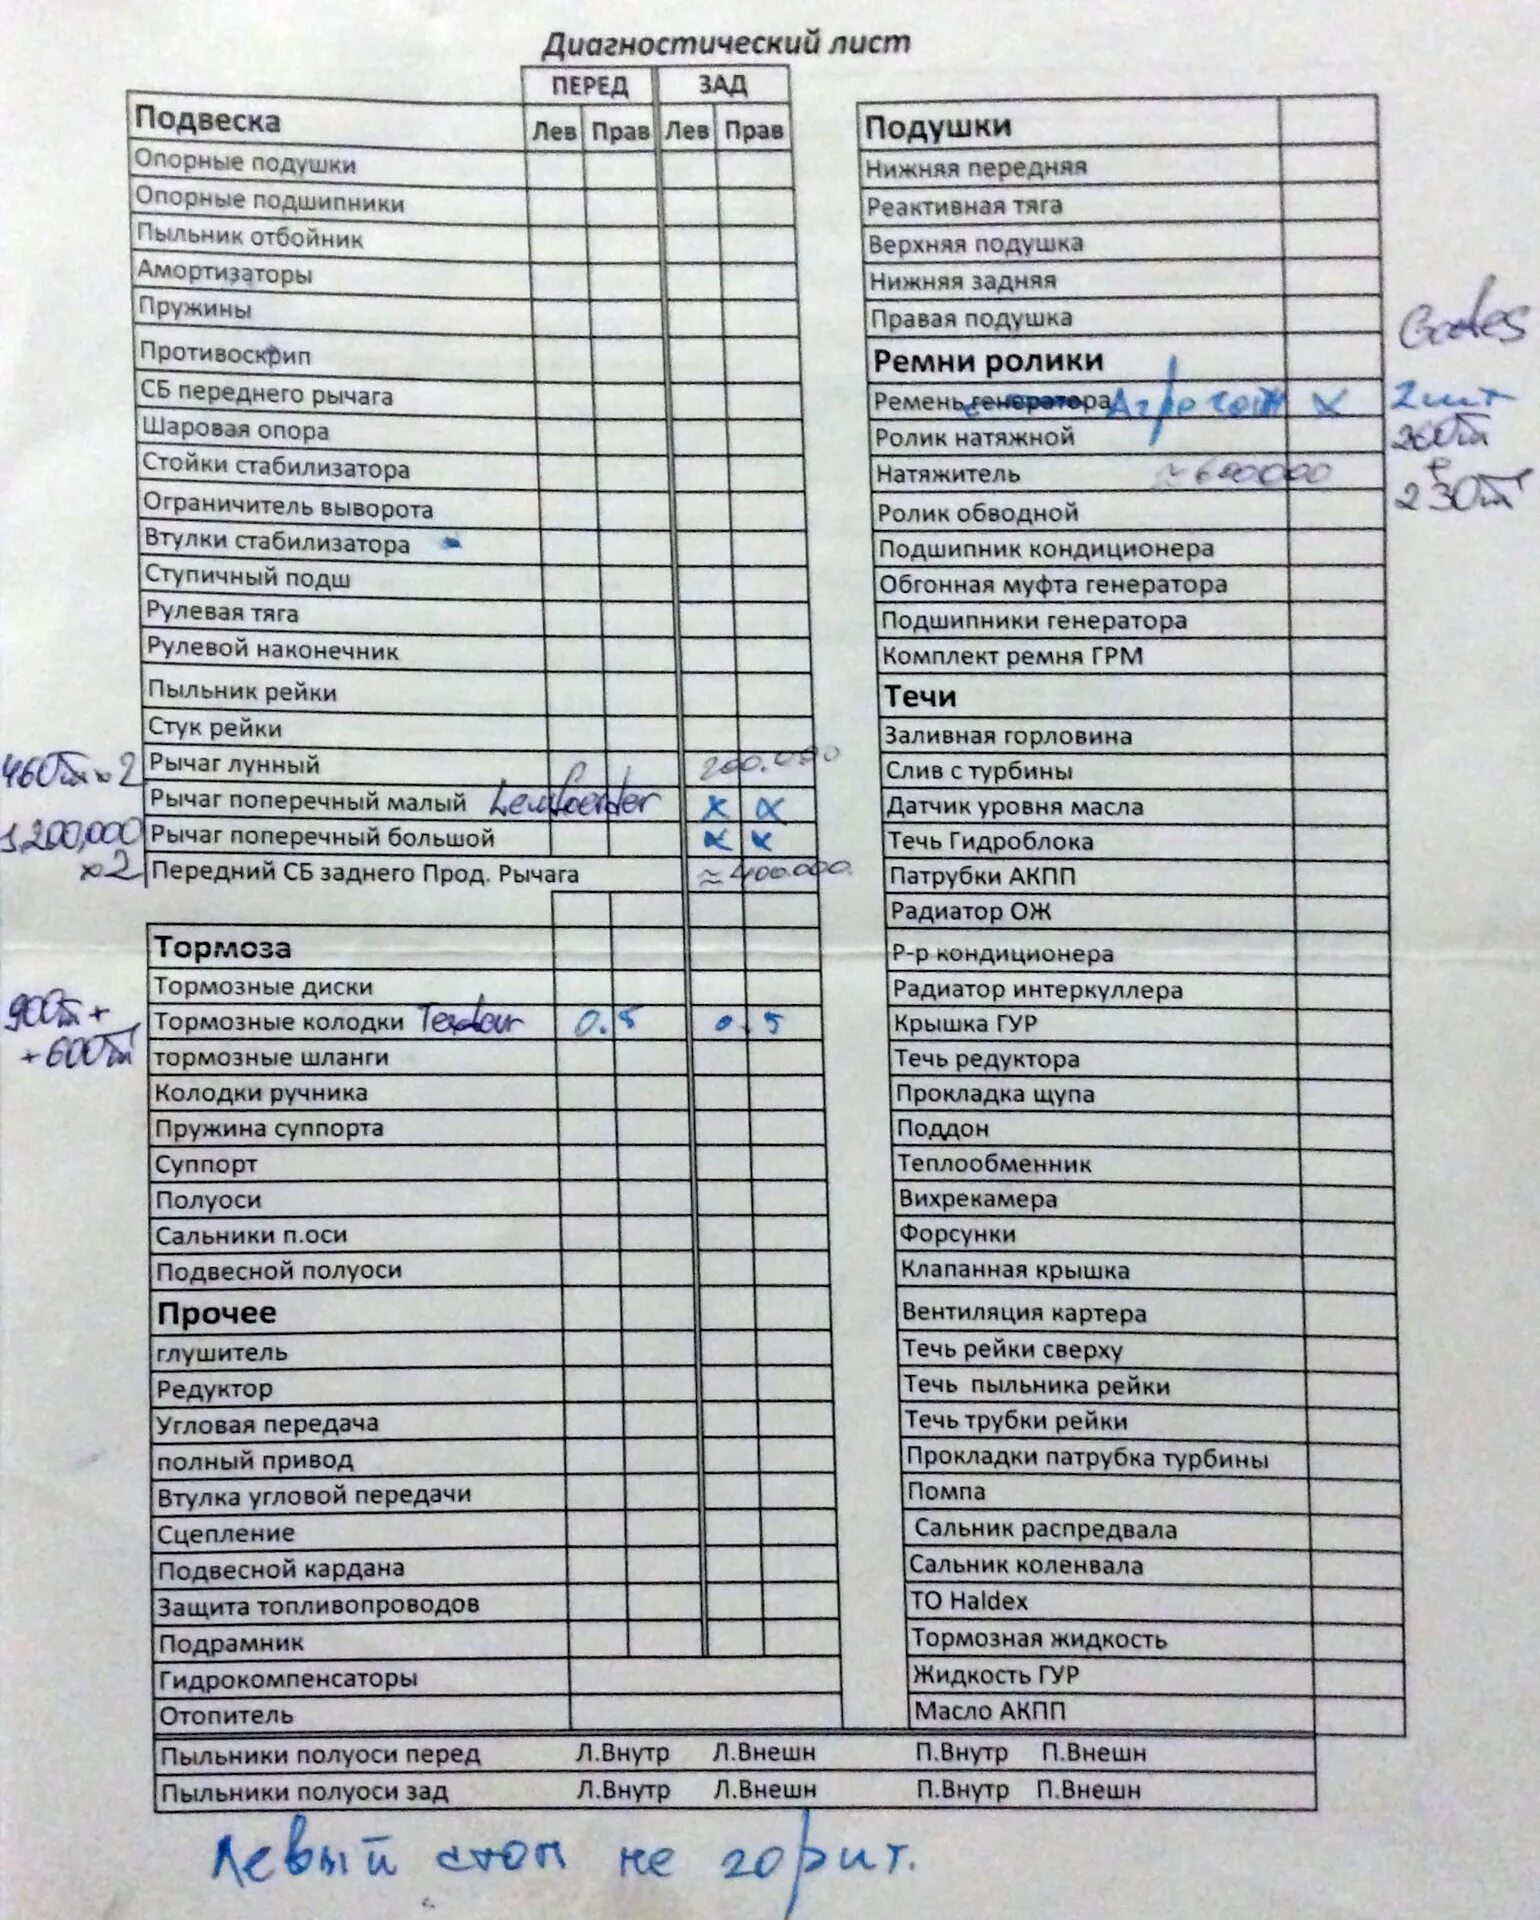 Диагностический лист
ПЕРЕД ЗАД
Подвеска Лев Прав Лев Прав
Опорные подушки
Опорные подшипники
Пыльник отбойник
Амортизаторы
Пружины
Противоскрип
СБ переднего рычага
Шаровая опора
Стойки стабилизатора
Ограничитель выворота
Втулки стабилизатора
Ступичный подш
Рулевая тяга
Рулевой наконечник
Пыльник рейки
Стук рейки
460т x2 Рычаг лунный 200.000
Рычаг поперечный малый Lemfoerder x x
1,200,000 Рычаг поперечный большой x x
x2 Передний СБ заднего Прод. Рычага ≈400.000.
Тормоза
Тормозные диски
900т + Тормозные колодки Textar 0.5 0.5
+600т тормозные шланги
Колодки ручника
Пружина суппорта
Суппорт
Полуоси
Сальники п.оси
Подвесной полуоси
Прочее
глушитель
Редуктор
Угловая передача
полный привод
Втулка угловой передачи
Сцепление
Подвесной кардана
Защита топливопроводов
Подрамник
Гидрокомпенсаторы
Отопитель
Подушки
Нижняя передняя
Реактивная тяга
Верхняя подушка
Нижняя задняя
Правая подушка
Gates
Ремни ролики
Ремень генератора x 2шт
Ролик натяжной 260т
Натяжитель ≈600.000 230т
Ролик обводной
Подшипник кондиционера
Обгонная муфта генератора
Подшипники генератора
Комплект ремня ГРМ
Течи
Заливная горловина
Слив с турбины
Датчик уровня масла
Течь Гидроблока
Патрубки АКПП
Радиатор ОЖ
Р-р кондиционера
Радиатор интеркуллера
Крышка ГУР
Течь редуктора
Прокладка щупа
Поддон
Теплообменник
Вихрекамера
Форсунки
Клапанная крышка
Вентиляция картера
Течь рейки сверху
Течь пыльника рейки
Течь трубки рейки
Прокладки патрубка турбины
Помпа
Сальник распредвала
Сальник коленвала
ТО Haldex
Тормозная жидкость
Жидкость ГУР
Масло АКПП
Пыльники полуоси перед Л.Внутр Л.Внешн П.Внутр П.Внешн
Пыльники полуоси зад Л.Внутр Л.Внешн П.Внутр П.Внешн
Левый стоп не горит.